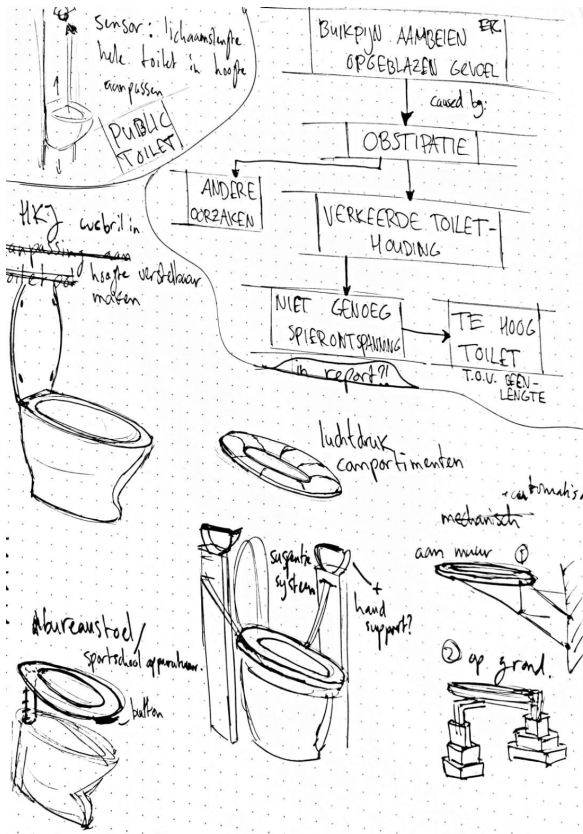 sensor: lichaamslengte
hele toilet in hoogte
aanpassen
PUBLIC
TOILET
BUIKPIJN AAMBEIEN EN
OPGEBLAZEN GEVOEL
caused by:
OBSTIPATIE
ANDERE
OORZAKEN
VERKEERDE TOILET-
HOUDING
NIET GENOEG
SPIERONTSPANNING
TE HOOG
TOILET
T.O.V. BEEN-
LENGTE
in report?!
HKJ wcbril in
aanpassing aan
hoogte verstelbaar
maken
luchtdruk
compartimenten
suspentie
systeem
+
hand
support?
mechanisch
aan muur 1
2 op grond.
bureaustoel/
sportschool apparatuur.
button